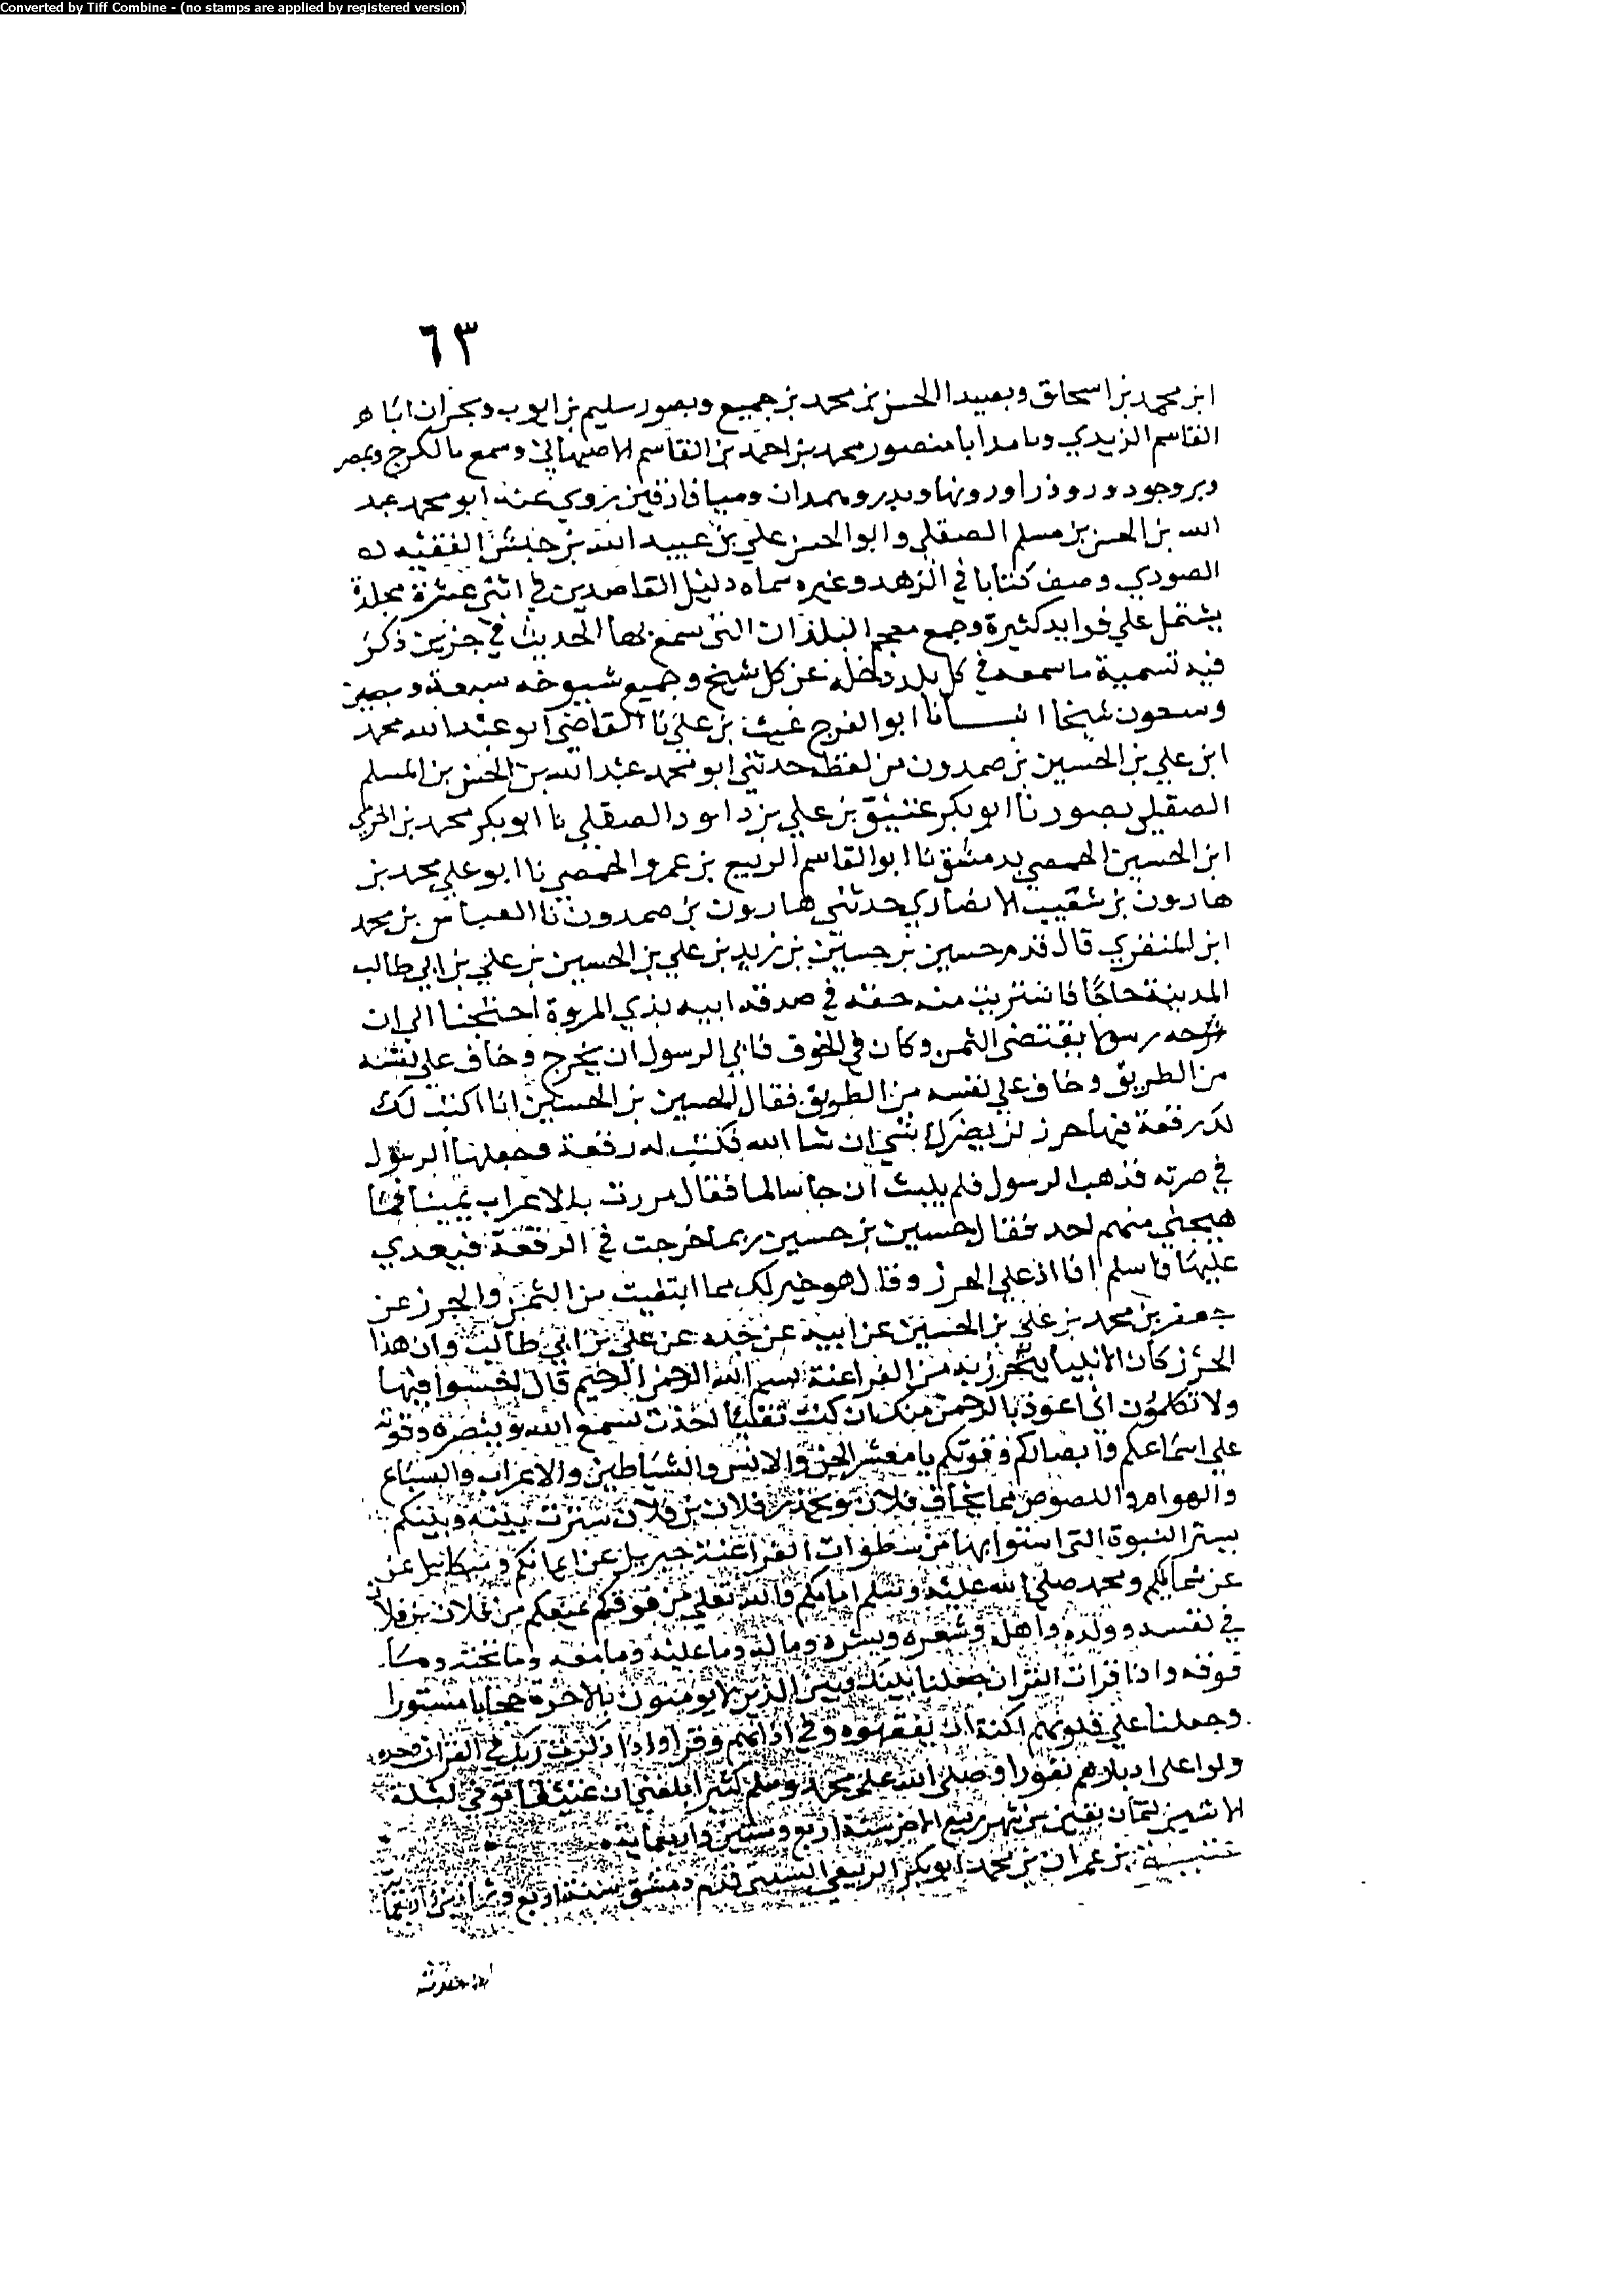 Converted by Tiff Combine - (no stamps are applied by registered version)
٦٣
ابن محمد بن اسحاق وبصيدا الحسن بن محمد بن جميع وبصور سليم بن ايوب وبحران ابا
القاسم الزيدي وبامد ابا منصور محمد بن احمد بن القاسم الاصبهاني وسمع بالكرج وبمصر
وبروجرد وروذراور ونهاوند وهمدان وميافارقين روي عنه ابو محمد عبد
الله بن الحسن بن مسلم الصقلي وابو الحسن علي بن عبيد الله بن الفقيه
الصوري وصنف كتابا في الزهد وغيره سماه دليل القاصدين في اثني عشرة مجلدة
يشتمل علي فوايد كثيرة وجمع معجم البلدان التي سمع بها الحديث في جزين ذكر
فيه تسمية ما سمعه في كل بلد دخله عن كل شيخ وجميع شيوخه سبعة
وسبعون شيخا انبـانا ابو الفرج غيث بن علي نا القاضي ابو عبد الله محمد
ابن علي بن الحسين بن صمدون من لفظه حدثني ابو محمد عبد الله بن الحسن بن المسلم
الصقلي بصور نا ابو بكر عتيق بن علي بن داود الصقلي نا ابو بكر محمد بن
ابن الحسين الحمصي بدمشق نا ابو القاسم الربيع بن عمرو الحمصي نا ابو علي محمد بن
هارون بن شعيب الانصاري حدثني هارون بن صمدون نا العباس بن محمد
ابن المنقري قال قدم حسين بن حسين بن زيد بن علي بن الحسين بن علي بن ابي طالب
المدينة حاجا فاشتريت منه حقه في صدقة ابيه بذي المروة احتجنا الي ان
نوجه رسولا يقتضي الثمن وكان في الخوف فابي الرسول ان يخرج وخاف علي نفسه
من الطريق وخاف علي نفسه من الطريق فقال الحسين بن الحسين انا اكتب لك
لك رقعة فيها حرز لن يضرك بشي ان شا الله فكتب له رقعة وجعلها الرسول
في صرته فذهب الرسول فلم يلبث ان جا سالما فقال مررت بالاعراب يمينا فما
هيجني منهم احد فقال حسين بن حسين ربما خرجت في الرفقة فيعدي
عليها فاسلم انا اذ علي الحرز وقال هو خير لك مما ابتغيت من الثمن والحرز عن
جعفر بن محمد بن علي بن الحسين عن ابيه عن جده عن علي بن ابي طالب وان هذا
الحرز كان الانبيا يتحرز به من الفراعنة بسم الله الرحمن الرحيم قال اخسوا فيها
ولا تكلمون اني اعوذ بالرحمن منك ان كنت تقيا اخذت بسمع الله وببصره وقوته
علي اسماعكم وابصاركم وقوتكم يا معشر الجن والانس والشياطين والاعراب والسباع
والهوام واللصوص مما يخاف فلان ويحذر فلان بن فلان سترت بينه وبينكم
بستر النبوة التي استتروا بها من سطوات الفراعنة جبريل عن ايمانكم وميكائيل عن
عن شمايلكم ومحمد صلي الله عليه وسلم امامكم والله تعلي من فوقكم يمنعكم من فلان بن فلان
في نفسه وولده واهله وشعره وبشره وماله وما عليه وما معه وما تحته وما
فوقه واذا قرات القران جعلنا بينك وبين الذين لا يومنون بالاخرة حجابا مستورا
وجعلنا علي قلوبهم اكنة ان يفقهوه وفي اذانهم وقرا واذا ذكرت ربك في القران وحده
ولوا علي ادبارهم نفورا وصلي الله علي محمد وسلم كثيرا بلغني ان عتيقا توفي ليلة
الاثنين لثمان بقين من شهر ربيع الاخر سنة اربع وستين واربعماية
عتيق بن عمران بن محمد ابو بكر الربعي السبتي قدم دمشق سنة اربع وثمانين واربعماية